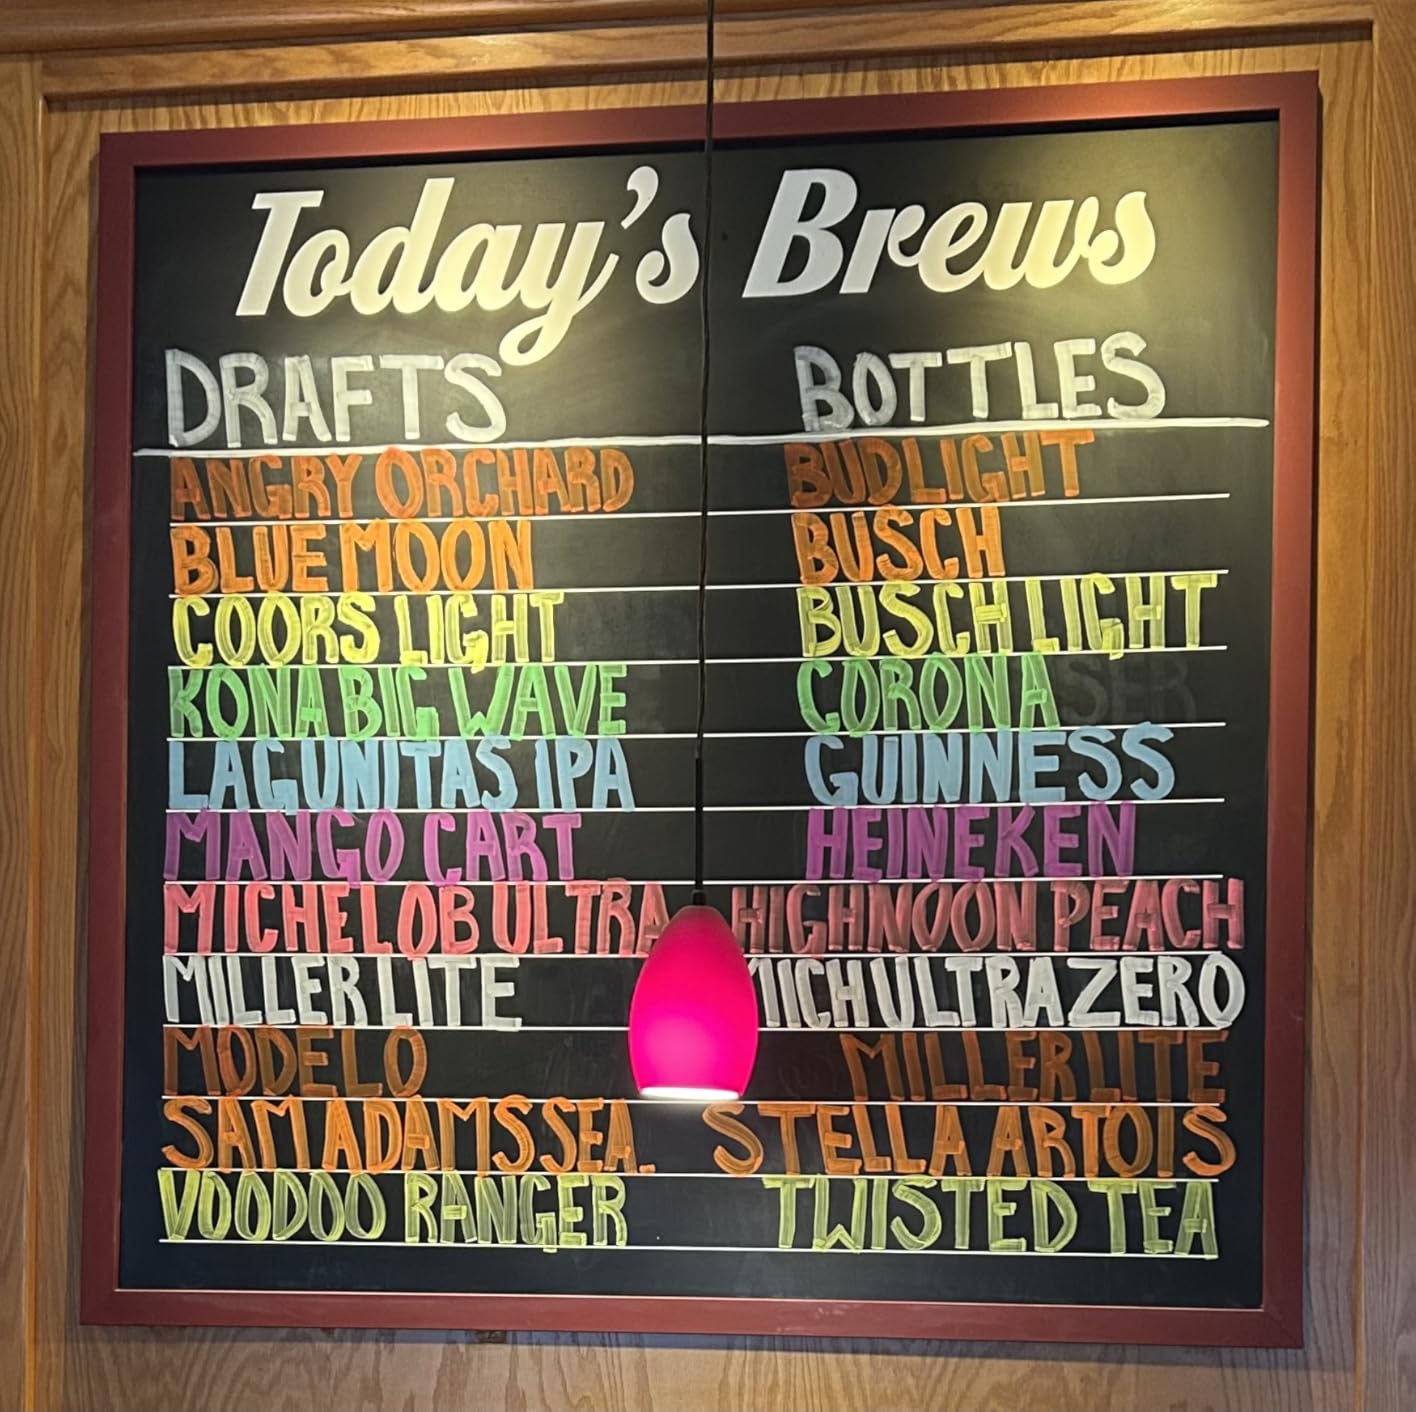 Today's Brews
DRAFTS
ANGRY ORCHARD
BLUE MOON
COORS LIGHT
KONA BIG WAVE
LAGUNITAS IPA
MANGO CART
MICHELOB ULTRA
MILLER LITE
MODELO
SAM ADAMS SEA.
VOODOO RANGER
BOTTLES
BUD LIGHT
BUSCH
BUSCH LIGHT
CORONA
GUINNESS
HEINEKEN
HIGHNOON PEACH
MICH ULTRA ZERO
MILLER LITE
STELLA ARTOIS
TWISTED TEA